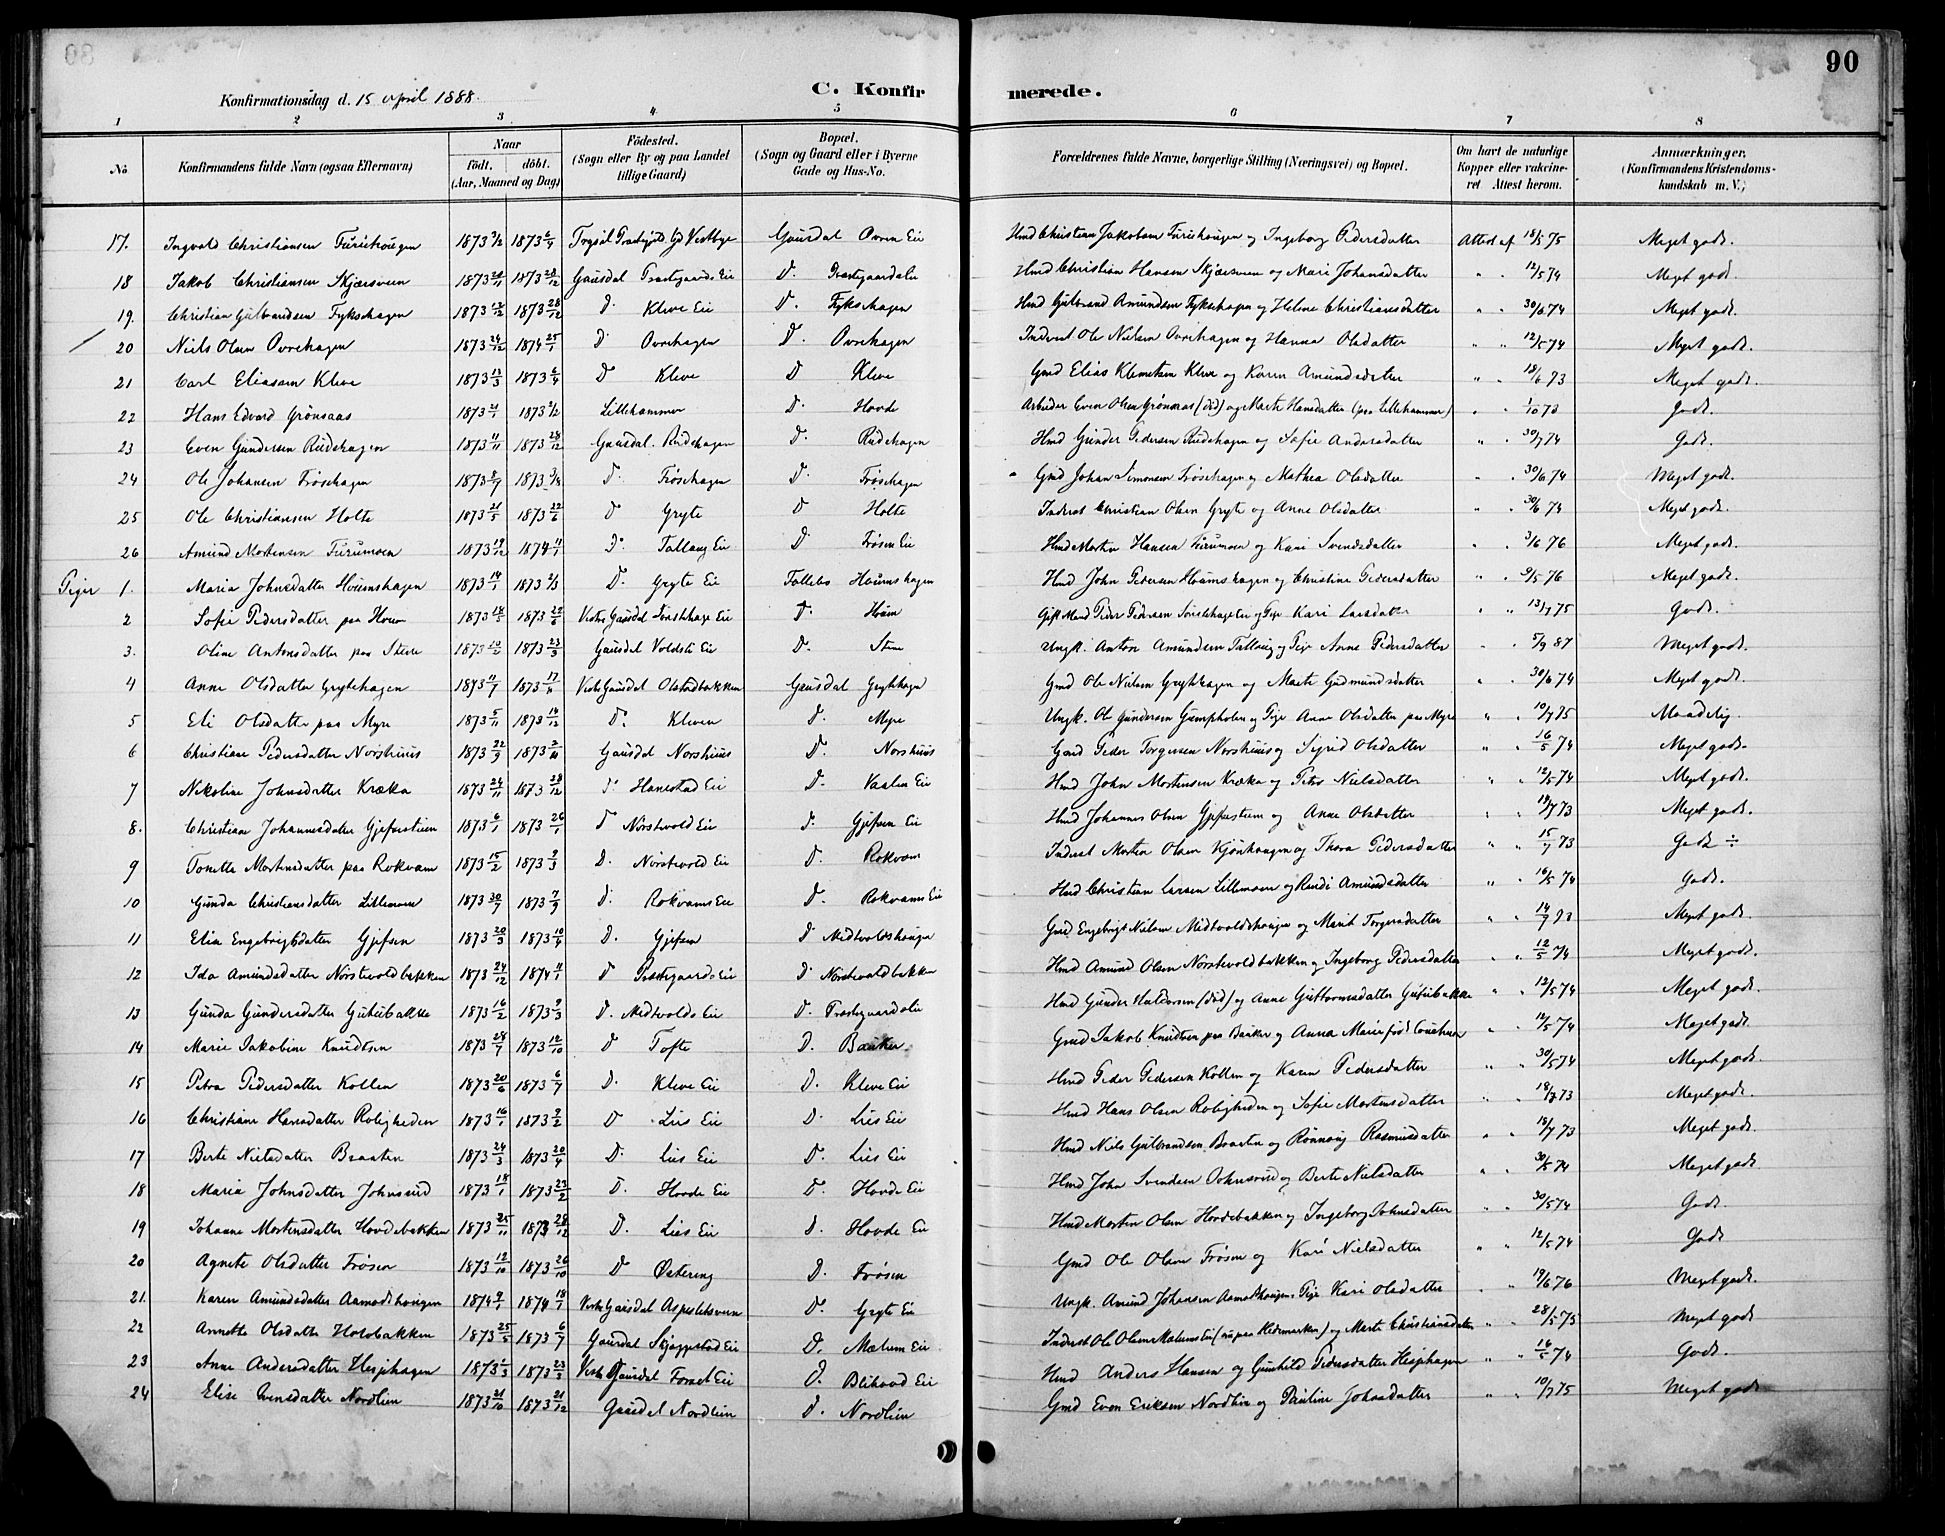 90
Konfirmationsdag d. 15 April 1888.
C. Konfirmerede.
1 2 3 4 5 6 7 8
No Konfirmandens fulde Navn (ogsaa Efternavn) Naar födt. döbt. (Aar, Maaned og Dag) Födested. (Sogn eller By og paa Landet tillige Gaard) Bopæl. (Sogn og Gaard eller i Byerne Gade og Hus-No. Forældrenes fulde Navne, borgerlige Stilling (Næringsvei) og Bopæl. Om havt de naturlige Kopper eller vakcineret. Attest herom. Anmærkninger, (Konfirmandens Kristendomskundskab m. V.)
17. Ingvald Christiansen Furuhougen 1873 1873 6/4 Trysil Gausdal Øvren Eie Hmd Christian Jakobsen Furuhaugen og Ingeborg Pedersdatter Attest af 18/5 75 Meget godt.
18 Jakob Christiansen Skjærsveen 1873 1873 28/12 Gausdal Præstegaards Eie D. Præstegaardseie Hmd Christian Hansen Skjærsveen og Mari Johansdatter " " 12/5 74 Meget godt.
19. Christian Gulbrandsen Fykshagen 1873 1873 28/12 D. Kleve Eie D. Fykshagen Hmd Gulbrand Amundsen Fykshagen og Helene Christiansdatter " " 30/6 74 Meget godt.
20 Niels Olsen Øvrehagen 1873 24/12 1874 25/1 D. Øvrehagen D. Øvrehagen Inderst Ole Nielsen Øvrehagen og Hanna Olsdatter " " 12/5 74 Meget godt.
21 Carl Eliassen Kleve 1873 13/3 1873 6/4 D Kleve D Kleve Gmd Elias Klemetsen Kleve og Karen Amundsdatter " " 18/6 73 Meget godt.
22 Hans Edvard Grønaas 1873 21/1 1873 2/2 Lillehammer D. Hovde Arbeider Even Olsen Grønaas (död) og Marte Hansdatter (paa Lillehammer) " " 1/10 73 Godt.
23 Even Gundersen Rudshagen 1873 11/11 1873 28/12 Gausdal. Rudshagen D. Rudshagen Hmd Gunder Pedersen Rudshagen og Sofie Andersdatter " " 30/7 74 Godt.
24 Ole Johansen Frøsehagen 1873 8/7 1873 3/8 D. Frøsehagen D. Frøsehagen Gmd Johan Simonsen Frøsehagen og Mathea Olsdatter " " 30/6 74 Meget godt.
25 Ole Christiansen Holte 1873 21/5 1873 22/6 D Gryte D Holte Inderst Christian Olsen Gryte og Anne Olsdatter " " 30/6 74 Meget godt.
26 Amund Mortensen Furumoen 1873 19/12 1874 11/1 D. Tallaug Eie D. Frøsen Eie Hmd Morten Hansen Furumoen og Kari Svendsdatter " " 3/6 76 Meget godt.
Piger 1. Maria Johnsdatter Houmshagen 1873 14/1 1873 2/3 D. Gryte Eie Follebo Houmshagen Hmd John Pedersen Houmshagen og Christine Pedersdatter " " 9/5 76 Meget godt.
2 Sofie Pedersdatter paa Houm 1873 18/5 1873 22/6 Vestre Gausdal Eie D. Houm Gift Mand Peder Pedersen og Pige Kari Larsdatter " " 13/7 75 Godt.
3. Oline Antonsdatter paa Steine 1873 1873 23/3 Gausdal Voldsti Eie D. Stene Ungk. Anton Amundsen Tallaug og Pige Anne Pedersdatter " " 5/9 87 Meget godt.
4 Anne Olsdatter Grytehagen 1873 11/7 1873 Vestre Gausdal Olstadbakken Gausdal Grytehagen Gmd Ole Nielsen Grytehagen og Marte Gudmundsdatter " " 30/6 74 Meget godt.
5 Eli Olsdatter paa Myre 1873 5/11 1873 14/12 D. Kleven D. Myre Ungk. Ole Gundersen Gumpholen og Pige Anne Olsdatter paa Myre " " 10/7 75 Maadelig.
6 Christiane Pedersdatter Norshuus 1873 22/9 1873 Gausdal Norshuus D. Norshuus Gmd Peder Torgersen Norshuus og Sigrid Olsdatter " " 16/5 74 Meget godt.
7 Nikoline Johnsdatter Kræka 1873 24/11 1873 28/12 D. Hanestad Eie D. Vaalen Eie Hmd John Mortensen Kræka og Petro Nielsdatter " " 12/5 74 Meget godt.
8. Christiane Johannesdatter Gjefsestuen 1873 6/1 1873 26/1 D Nørstvold Eie D. Gjefsen Eie Hmd Johannes Olsen Gjefsestuen og Anne Olsdatter " " 14/7 73 Meget godt.
9 Tonette Mortensdatter paa Rokvam 1873 15/2 1873 9/3 D. Nørstevold Eie D. Rokvam Inderst Morten Olsen Kjønhaugen og Thora Pedersdatter " " 15/7 73 Godt ÷
10 Gunda Christiansdatter Lillemoen 1873 30/7 1873 7/9 D. Rokvams Eie D. Rokvams Eie Hmd Christian Larsen Lillemoen og Randi Amundsdatter " " 16/5 74 Godt.
11 Elia Engebrigtsdatter Gjefsen 1873 20/3 1873 10/4 D. Gjefsen D Midtvoldshougen Gmd Engebrigt Nielsen Midtvoldshougen og Marit Torgersdatter " " 14/7 73 Meget godt.
12 Ida Amundsdatter Nørstevoldbakken 1873 24/12 1874 11/1 D Præstegaards Eie D. Nørstevoldbakken Hmd Amund Olsen Nørstevoldbakken og Ingeborg Pedersdatter " " 12/5 74 Meget godt.
13 Gunda Gundersdatter Gutubakke 1873 16/2 1873 9/3 D. Midtvolds Eie D. Præstegaardseie Hmd Gunder Halvorsen (död) og Anne Guttormsdatter Gutubakke " " 12/5 74 Meget godt.
14 Marie Jakobine Knudsen 1873 28/7 1873 12/10 D Tofte D. Baaker Gmd Jakob Knudsen paa Baaker og Anna Marie född " " 12/5 74 Meget godt.
15 Petra Pedersdatter Kollen 1873 20/6 1873 6/7 D. Kleve Eie D. Kleve Eie Hmd Peder Pedersen Kollen og Karen Pedersdatter " " 30/5 74 Meget godt.
16 Christiane Hansdatter Roligheden 1873 16/1 1873 9/2 D Lies Eie D. Lies Eie Hmd Hans Olsen Roligheden og Sofie Mortensdatter " " 18/7 73 Meget godt.
17 Berte Nielsdatter Braaten 1873 24/3 1873 20/4 D. Lies Eie D. Lies Eie Hmd Niels Gulbrandsen Braaten og Rønnaug Rasmusdatter " " 18/7 73 Meget godt.
18 Maria Johnsdatter Johnsrud 1873 18/1 1873 23/2 D. Hovde Eie D. Hovde Eie Hmd John Svendsen Johnsrud og Berte Nielsdatter " " 30/5 74 Meget godt.
19 Johanne Mortensdatter Hovdebakken 1873 25/11 1873 28/12 D. Lies Eie D. Hovde Eie Hmd Morten Olsen Hovdebakken og Ingeborg Johnsdatter " " 30/5 74 Godt.
20 Agnete Olsdatter Frøsen 1873 12/10 1873 26/10 D Østering D. Frøsen Gmd Ole Olsen Frøsen og Kari Nielsdatter " " 12/5 74 Godt
21. Karen Amundsdatter Aamodthougen 1874 9/1 1874 18/1 Vestre Gausdal D. Gryte Eie Ungk. Amund Johansen Aamodthougen Pige Kari Olsdatter " " 19/6 76 Meget godt.
22 Annette Olsdatter Holobakken 1873 25/5 1873 6/7 Gausdal Skjeggestad Eie D. Mælum Eie Inderst Ole Olsen Mælums Eie (nu paa Hedemarken) og Marte Christiansdatter " " 28/5 75 Meget godt.
23 Anne Andersdatter Hesjehagen 1873 1873 23/3 Vestre Gausdal Forset Eie D. Blihovd Eie Hmd Anders Hansen og Gunhild Pedersdatter Hesjehagen " " 16/5 74 Godt.
24 Elise Evensdatter Nordlien 1873 21/10 1873 21/12 Gausdal Nordlien D. Nordlien Gmd Even Eriksen Nordlien og Pauline Johnsdatter " " 10/7 75 Meget godt